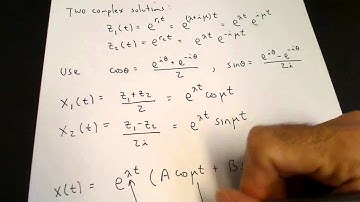 Two complex solutions:
z₁(t) = e^{r₁t} = e^{(λ+iμ)t} = e^{λt} e^{iμt}
z₂(t) = e^{r₂t} = e^{λt} e^{-iμt}
Use cosθ = (e^{iθ} + e^{-iθ})/2, sinθ = (e^{iθ} - e^{-iθ})/2i
x₁(t) = (z₁+z₂)/2 = e^{λt} cosμt
x₂(t) = (z₁-z₂)/2i = e^{λt} sinμt
x(t) = e^{λt} (A cosμt + B